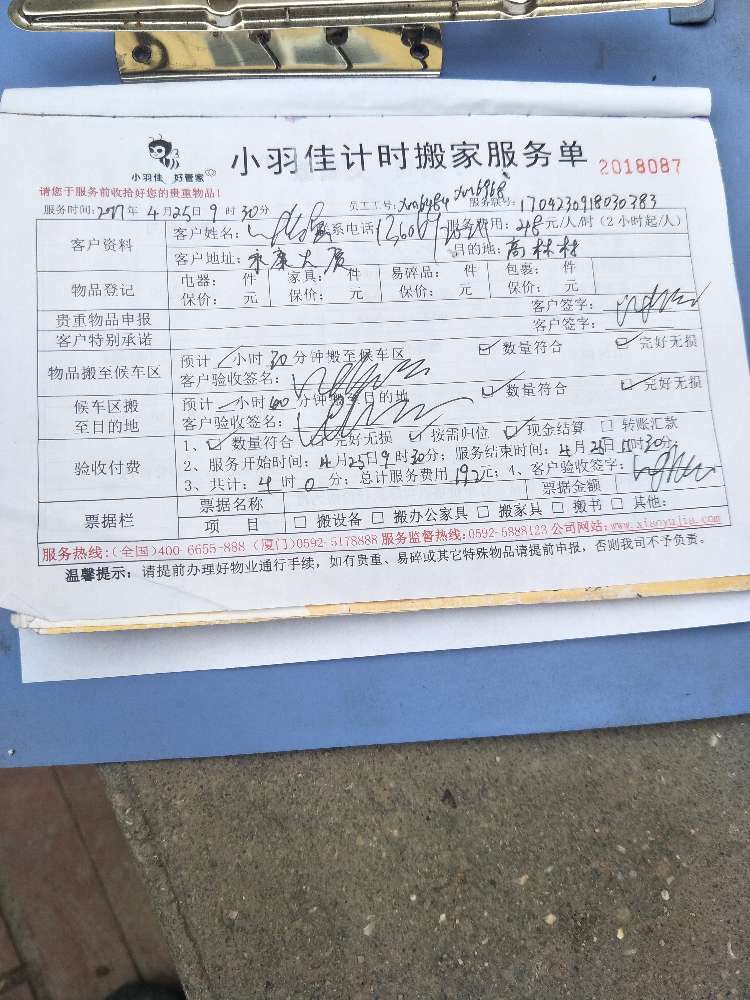 小羽佳 好管家
小羽佳计时搬家服务单 2018087
请您于服务前收拾好您的贵重物品!
服务时间:2017年 4月25日 9时30分 员工工号:xm6484 xm6968 服务联号:1704230918030383
客户资料 客户姓名: 联系电话 服务费用:48元/人/时(2小时起/人)
客户地址:永康大厦 目的地:高林村
物品登记 电器: 件 家具: 件 易碎品: 件 包裹: 件
保价: 元 保价: 元 保价: 元 保价: 元
贵重物品申报 客户签字:
客户特别承诺 客户签字:
物品搬至候车区 预计 小时30分钟搬至候车区 ☑ 数量符合 ☑ 完好无损
客户验收签名:
候车区搬至目的地 预计 小时60分钟搬至目的地 ☑ 数量符合 ☑ 完好无损
客户验收签名:
验收付费 1、☑ 数量符合 ☑ 完好无损 ☑ 按需归位 ☑ 现金结算 □ 转账汇款
2、服务开始时间:4月25日9时30分;服务结束时间:4月25日 时30分;
3、共计:4时0分;总计服务费用192元;4、客户验收签字:
票据栏 票据名称 票据金额
项 目 □ 搬设备 □ 搬办公家具 □ 搬家具 □ 搬书 □ 其他:
服务热线:(全国)400-6655-888 (厦门)0592-5178888 服务监督热线:0592-5888123 公司网站:www.xiaoyujia.com
温馨提示:请提前办理好物业通行手续,如有贵重、易碎或其它特殊物品请提前申报,否则我司不予负责。